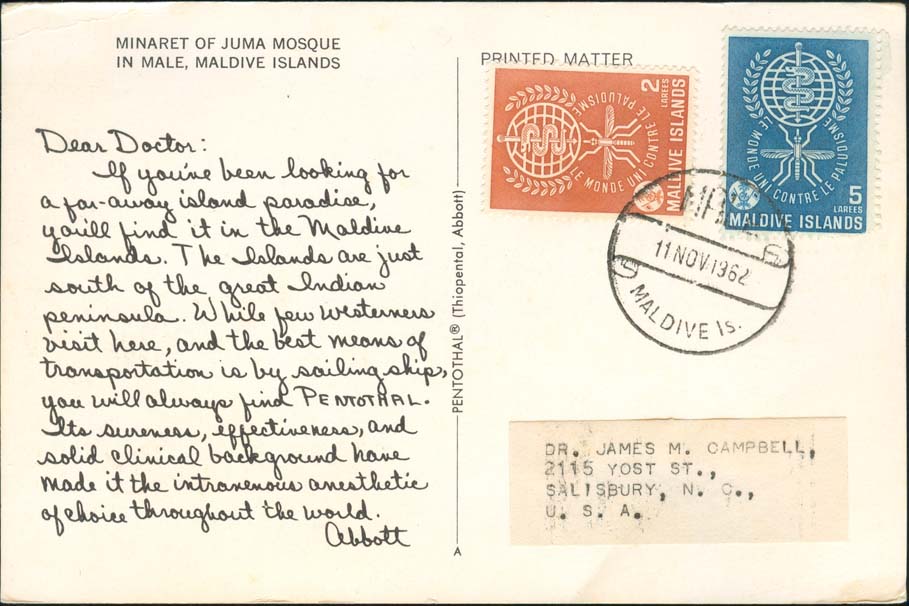 MINARET OF JUMA MOSQUE
IN MALE, MALDIVE ISLANDS
Dear Doctor:
If you've been looking for
a far-away island paradise,
you'll find it in the Maldive
Islands. The Islands are just
south of the great Indian
peninsula. While few westerners
visit here, and the best means of
transportation is by sailing ship,
you will always find PENTOTHAL.
Its sureness, effectiveness, and
solid clinical background have
made it the intravenous anesthetic
of choice throughout the world.
Abbott
PENTOTHAL® (Thiopental, Abbott)
A
PRINTED MATTER
2
LAREES
MALDIVE ISLANDS
LE MONDE UNI CONTRE LE PALUDISME
LE MONDE UNI CONTRE LE PALUDISME
5
LAREES
MALDIVE ISLANDS
11 NOV 1962
MALDIVE Is.
DR. JAMES M. CAMPBELL,
2115 YOST ST.,
SALISBURY, N. C.,
U. S. A.